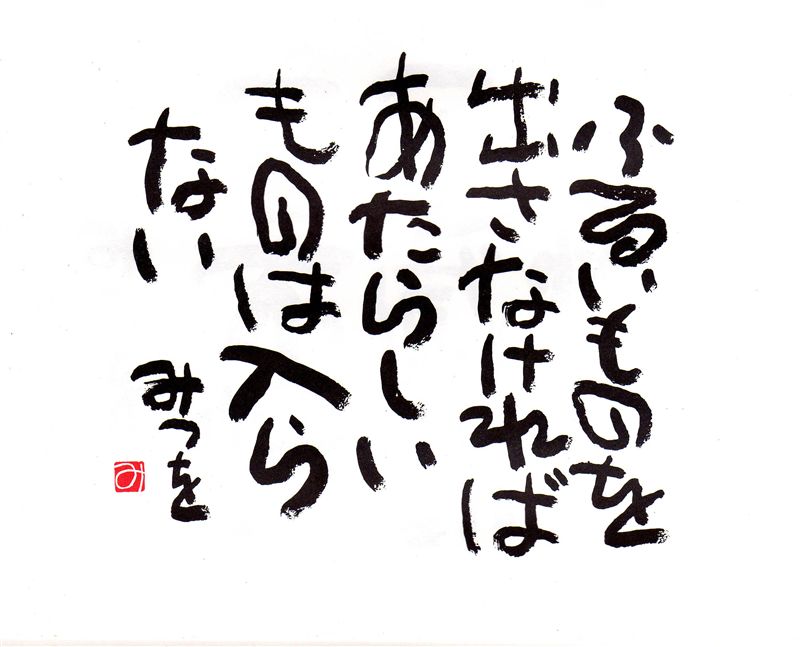 ふるいものを
出さなければ
あたらしい
ものは入ら
ない
みつを
み